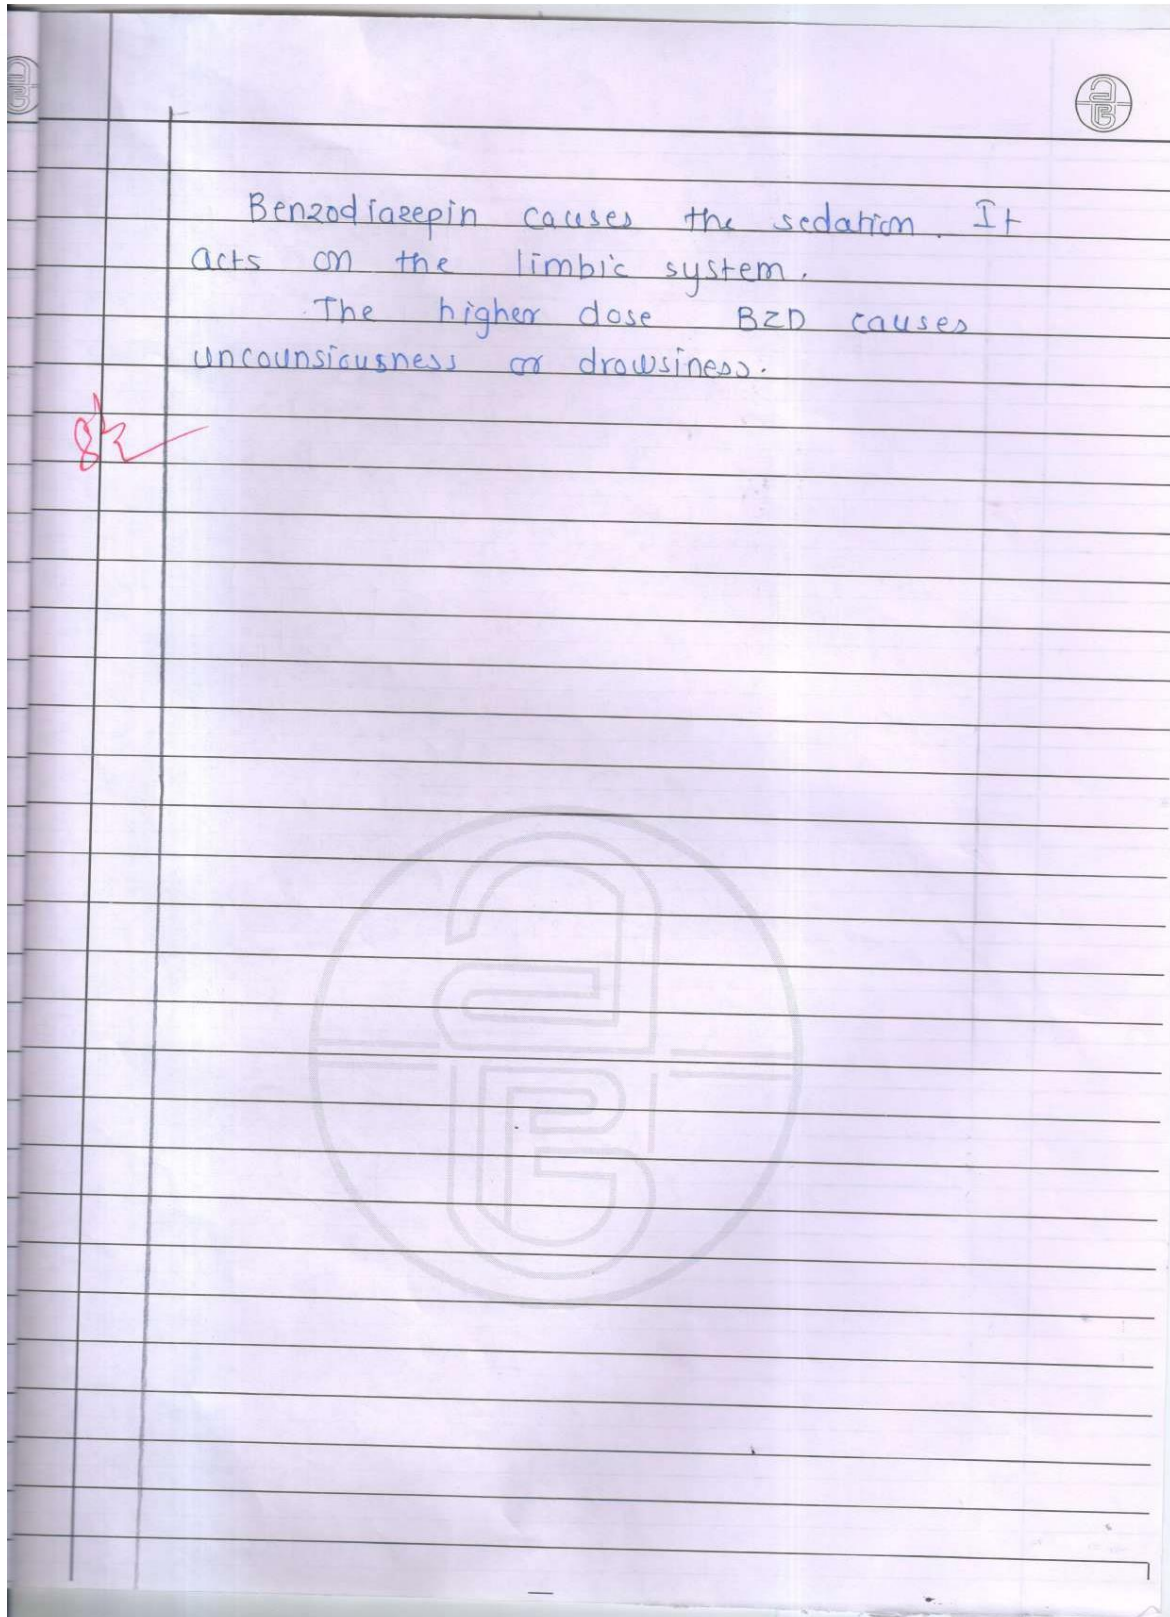 Benzodiazepin causes the sedation. It
acts on the limbic system.
The higher dose BZD causes
uncounsiousness or drowsiness.